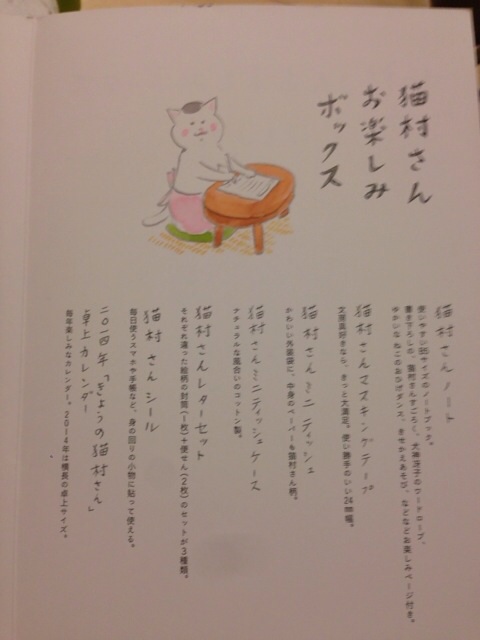 猫村さん
お楽しみ
ボックス
猫村さんノート
使いやすいB5サイズのノートブック。
書き下ろしの、猫村さんすごろく、犬神冴子のワードローブ、
ゆかいな ねこのおひげダンス、きせかえあそび、などなどお楽しみページ付き。
猫村さんマスキングテープ
文房具好きなら、きっと大満足。使い勝手のいい24mm幅。
猫村さんミニティッシュ
かわいい外装袋に、中身のペーパーも猫村さん柄。
猫村さんミニティッシュケース
ナチュラルな風合いのコットン製。
猫村さんレターセット
それぞれ違った絵柄の封筒(1枚)+便せん(2枚)のセットが3種類。
猫村さんシール
毎日使うスマホや手帳など、身の回りの小物に貼って使える。
二〇一四年「きょうの猫村さん」
卓上カレンダー
毎年楽しみなカレンダー。2014年は横長の卓上サイズ。